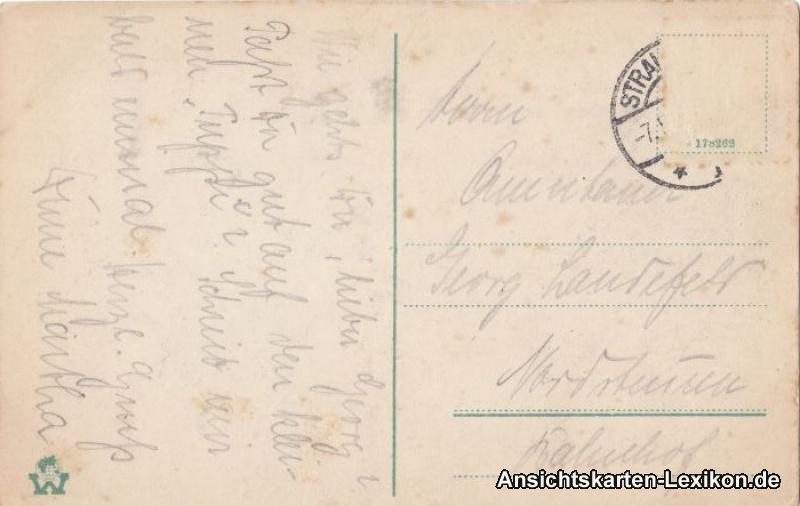 Wie gehts Dir, lieber Georg?
Paßt Du gut auf den klei-
nen
Schreib mir
bald einmal. Herzl. Gruß
Deine Martha
STRA
-7.
178262
Herrn
Georg Landefeld
Nordstemmen
Bahnhof
Ansichtskarten-Lexikon.de